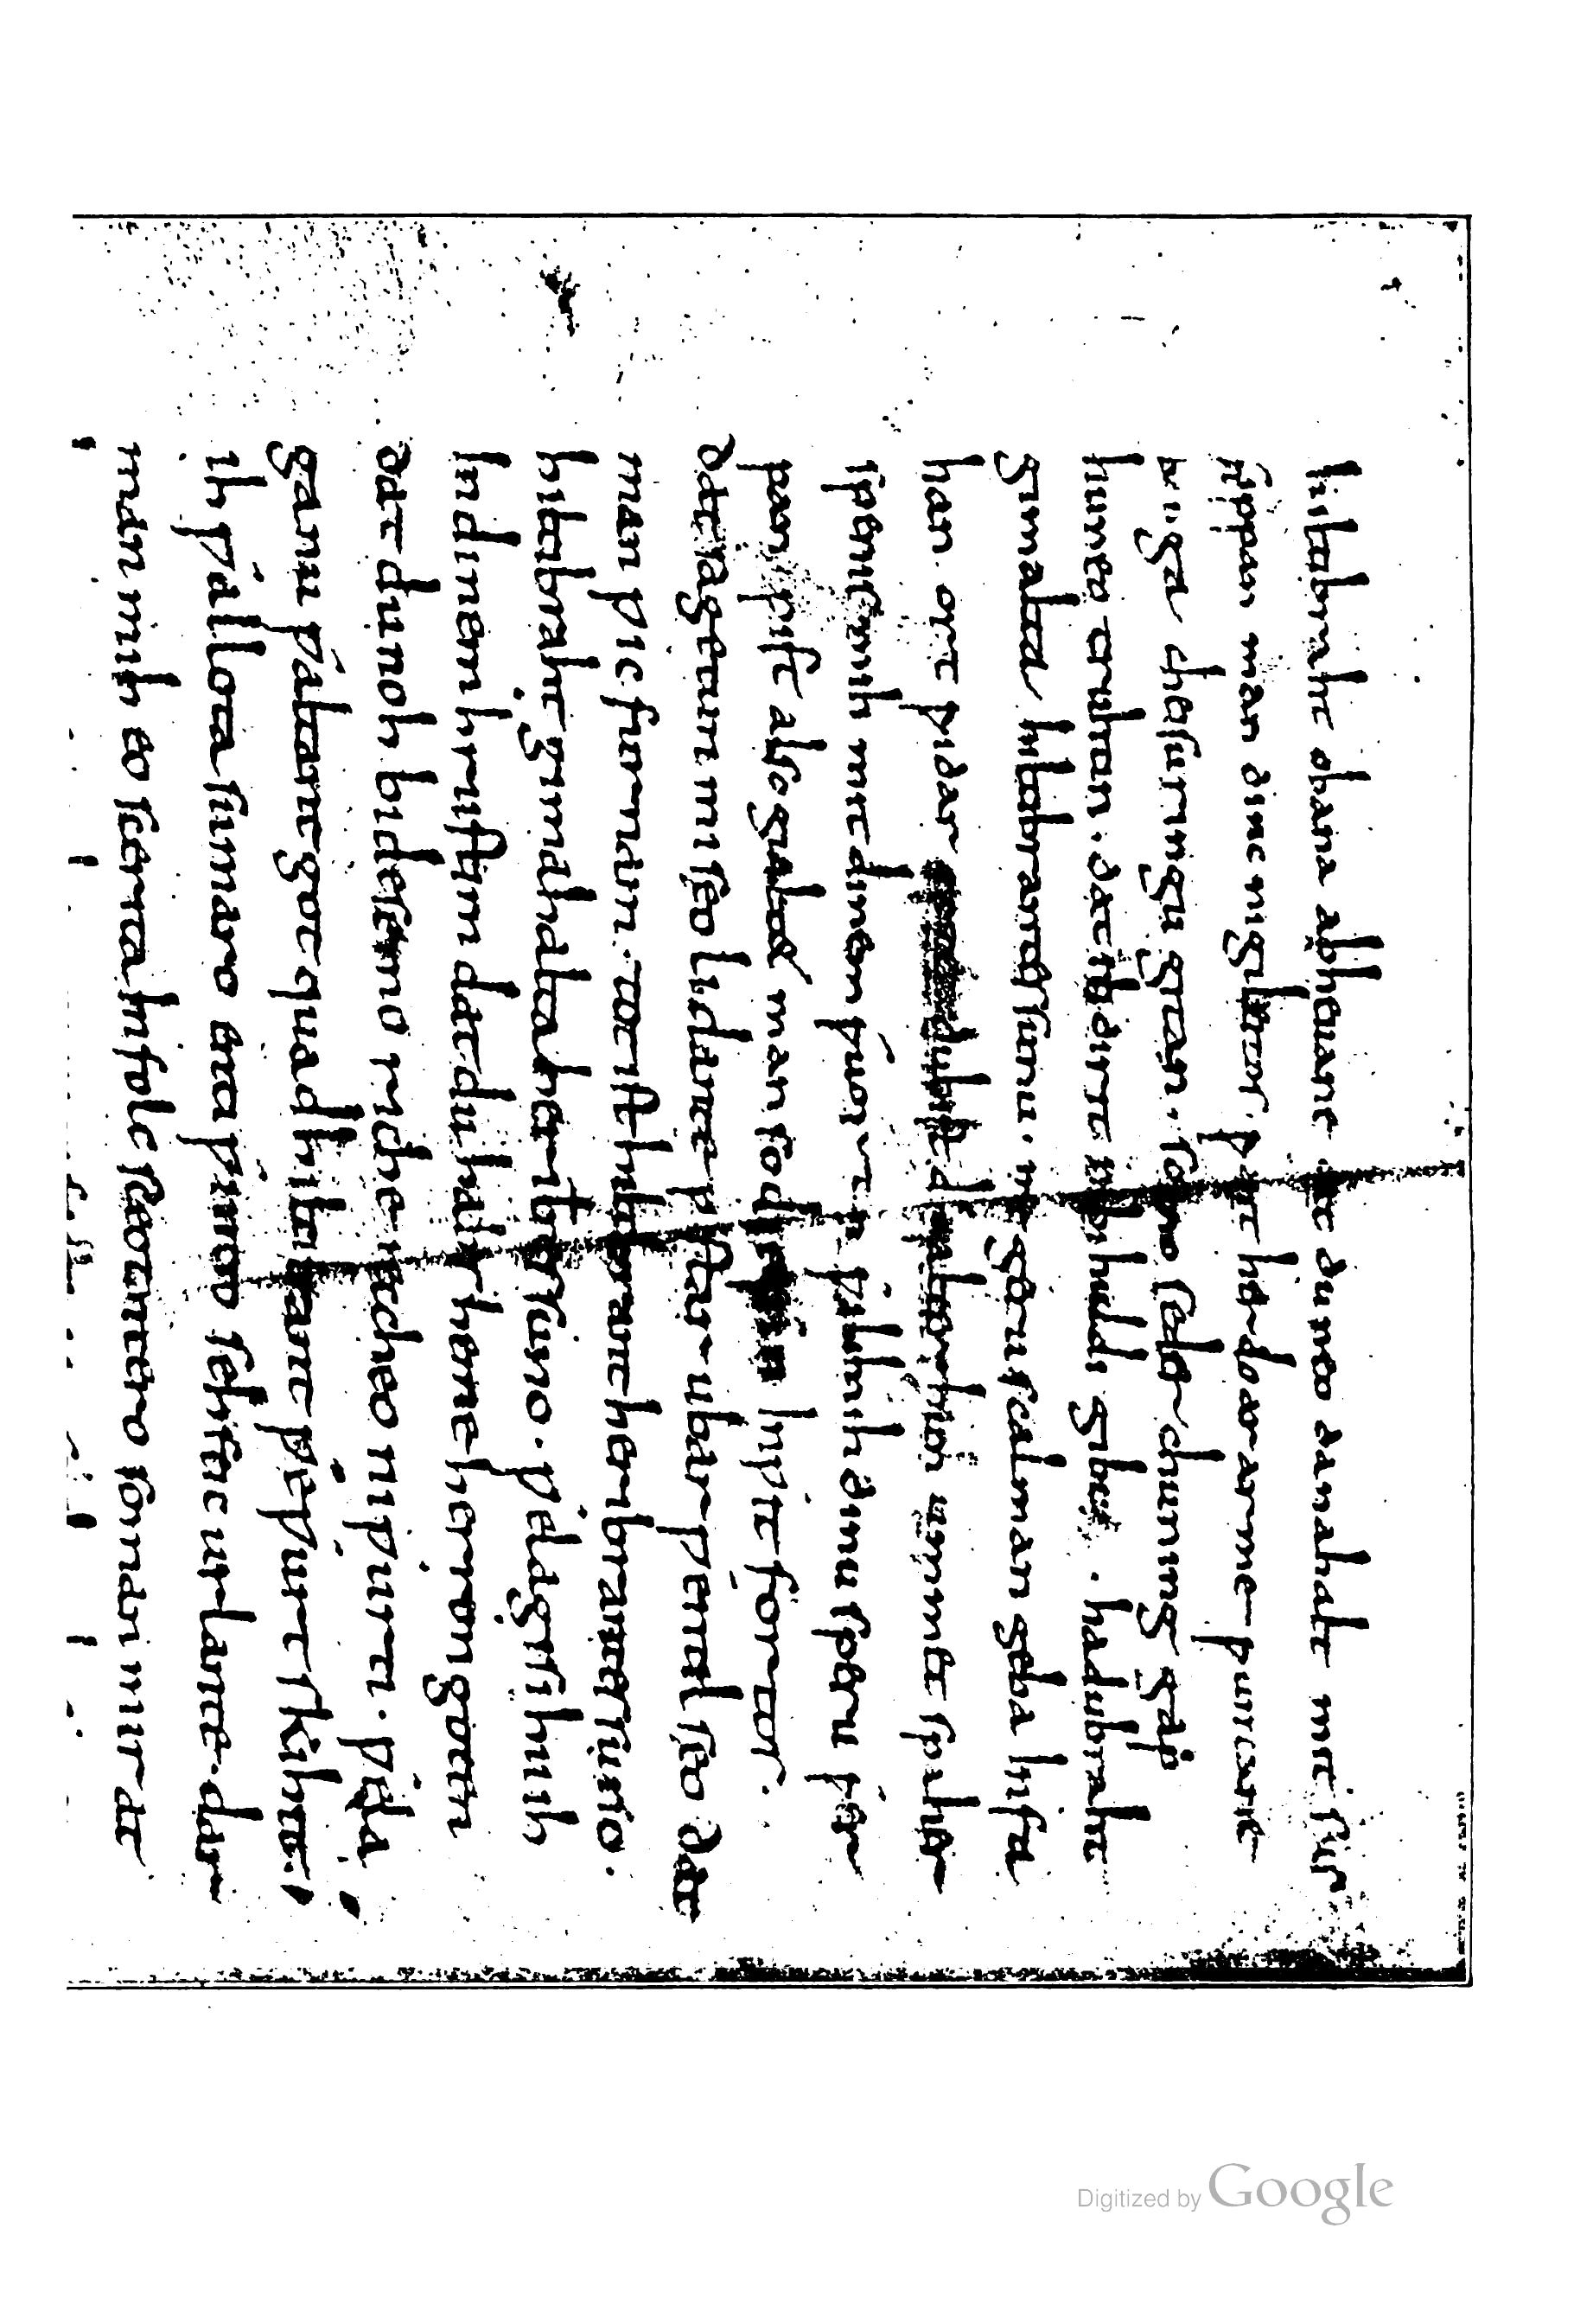 hiltibraht obana ab heuane dat du neo danahalt mit sus
sippan man dinc ni gileitos. ƿant her do ar arme ƿuntane
cheisuringu gitan. so imo seder chuning gap
huneo truhtin. dat ih dir it nu bi huldi gibu. hadubraht
gimalta hiltibrantes sunu. mit geru scal man geba infa
han. ort ƿidar du bist dir alter hun ummet spaher
spenis mih mit dinem ƿuortun ƿili mih dinu speru ƿer
pan. pist also gialtet man so du inƿit fortos.
dat sagetun mi seolidante ƿestar ubar ƿentilseo dat
man ƿic furnam. tot ist hiltibrant heribrantes suno.
hiltibraht gimahalta heribtes suno. ƿela gisihu ih
in dinem hrustim dat du habes heme herron goten
dat du noh bi desemo riche reccheo ni ƿurti. ƿela
ga nu ƿaltant got quad hiltibrant ƿeƿurt skihit.
ih ƿallota sumaro enti ƿintro sehstic ur lante. dar
man mih eo scerita in folc sceotantero so man mir at
Digitized by Google